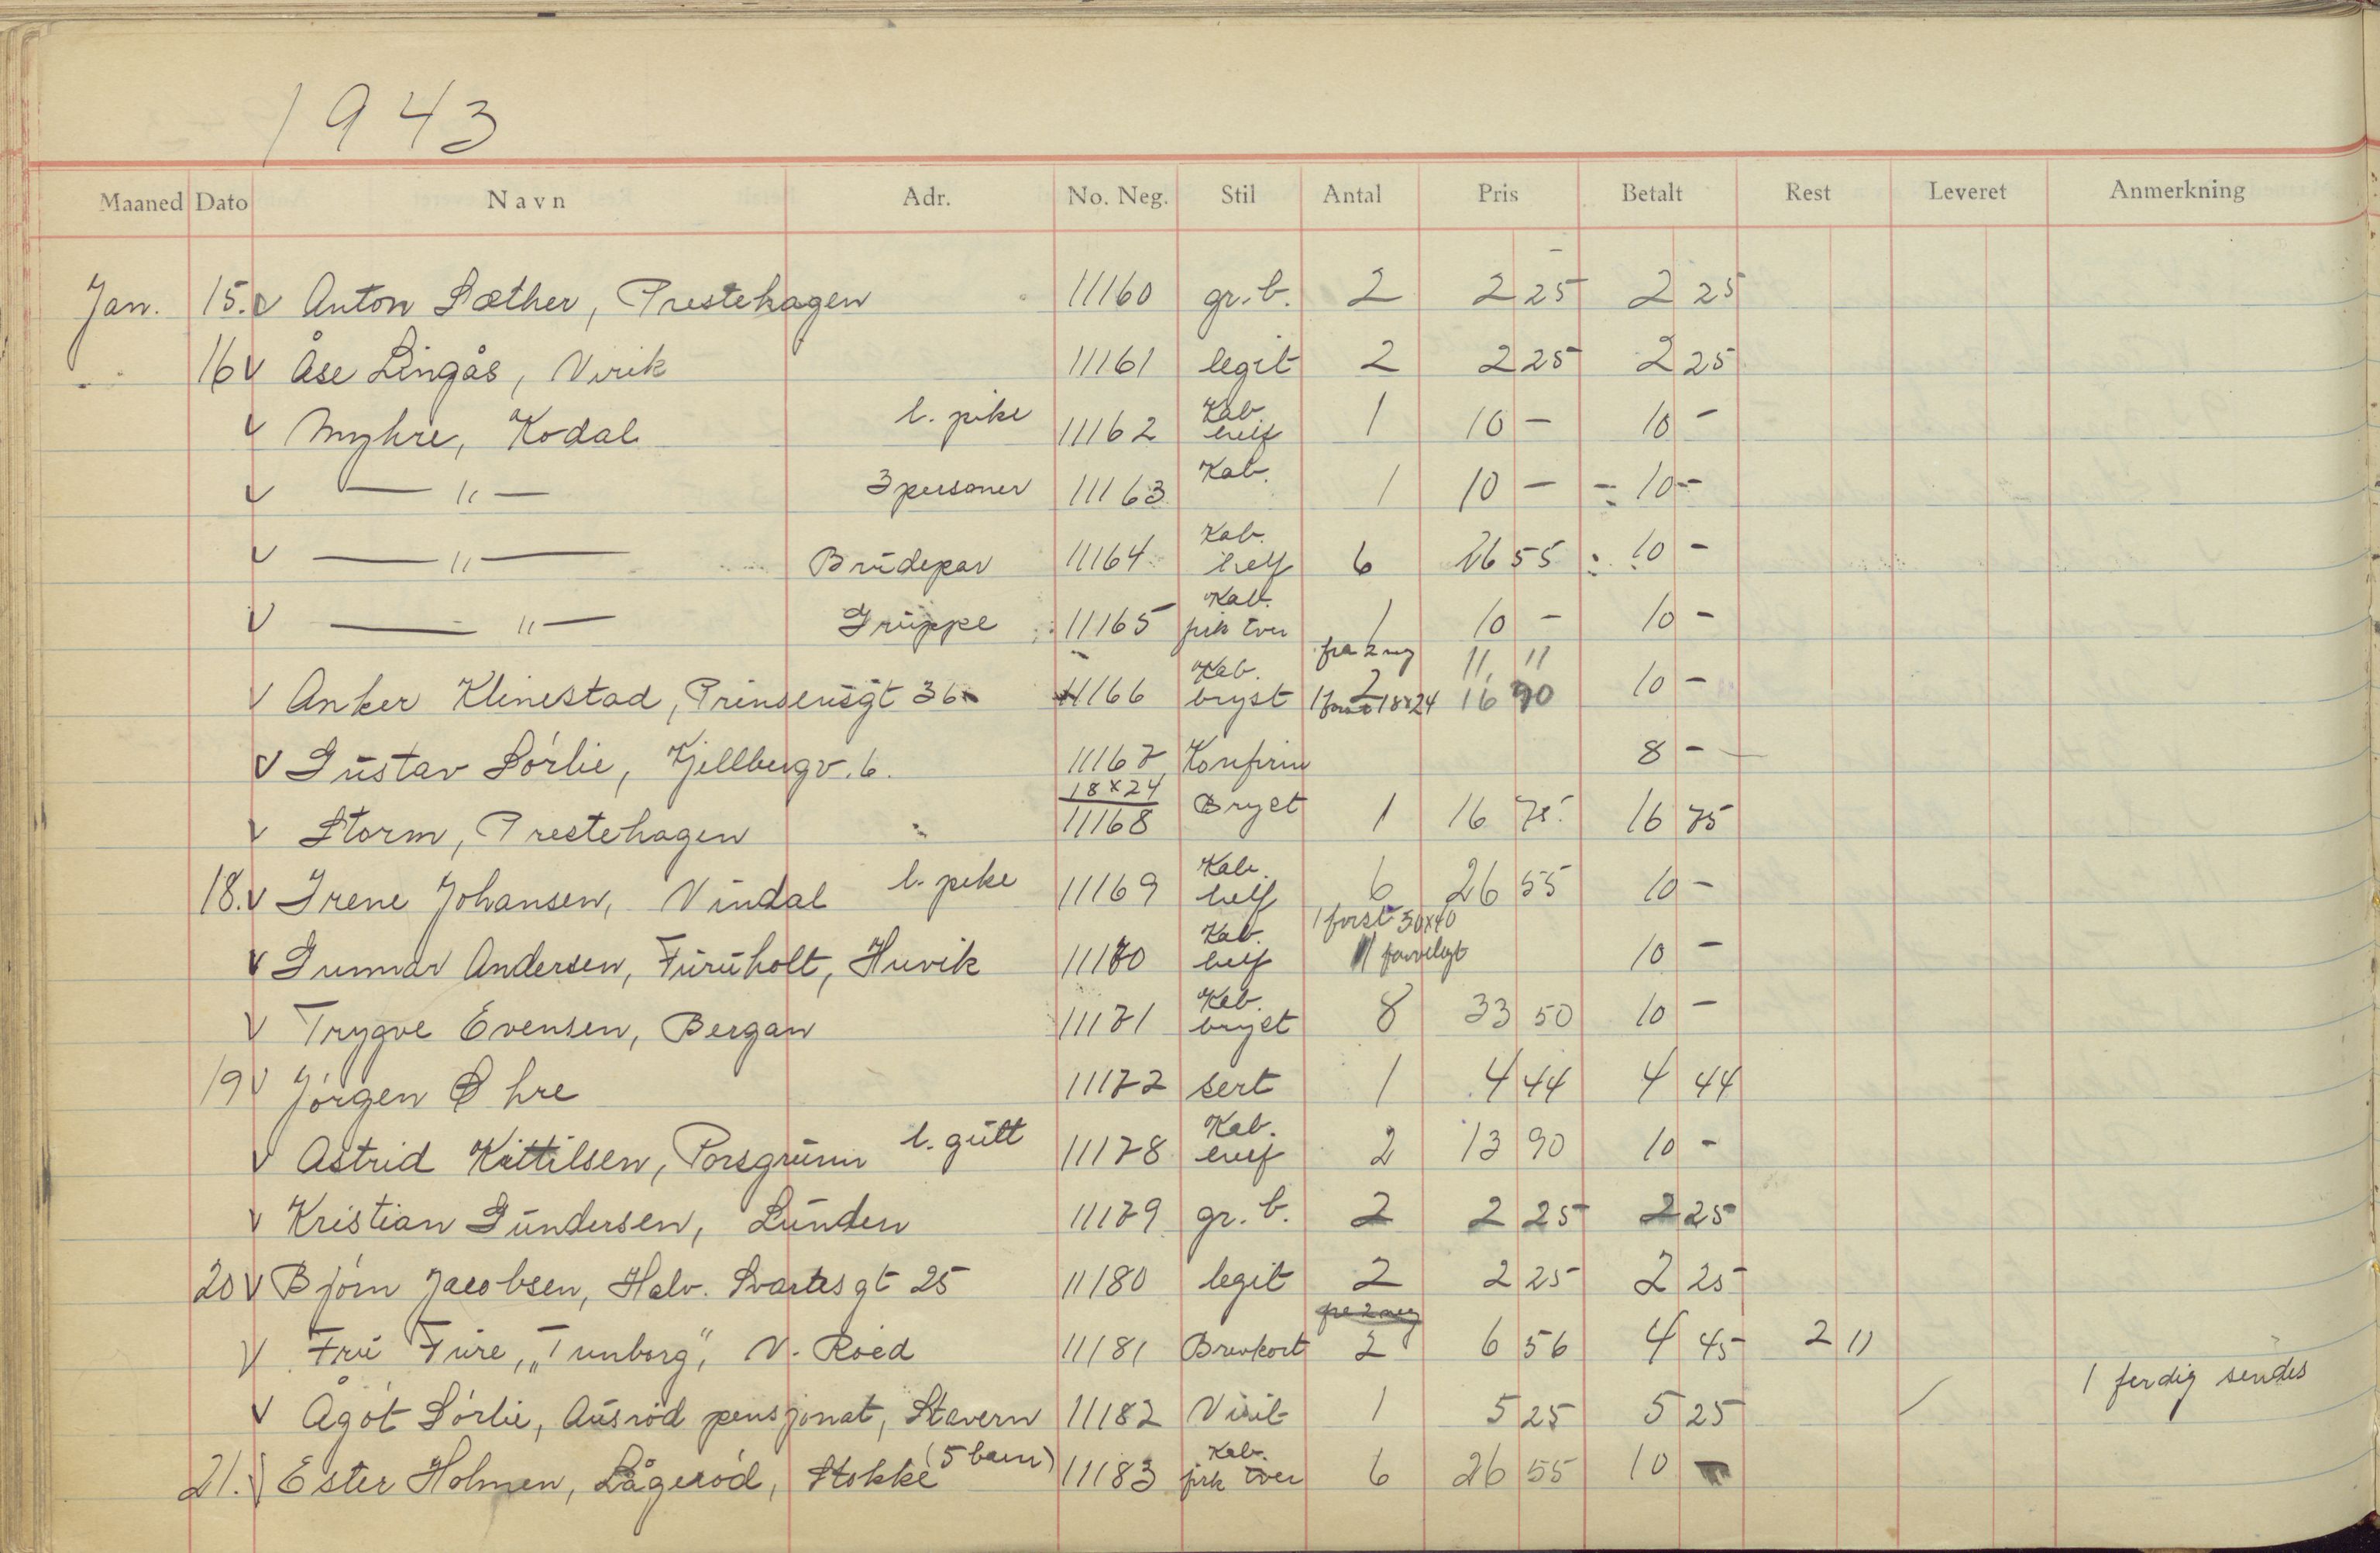 1943
Maaned Dato Navn Adr. No. Neg. Stil Antal Pris Betalt Rest Leveret Anmerkning
Jan. 15. v Anton Sæther, Prestehagen 11160 gr. b. 2 2 25 2 25
16 v Åse Lingås, Virik 11161 legit 2 2 25 2 25
v Myhre, Kodal l. pike 11162 Kab. helf 1 10 - 10 -
v — " — 3 personer 11163 Kab. 1 10 - - 10 -
v — " — Brudepar 11164 Kab. helf 6 26 55 : 10 -
v — " — Gruppe 11165 Kab. prk tver 1 10 - 10 -
fra 2 neg 11, 11
v Anker Klinestad, Prinsensgt 36 11166 Kab. bryst 2 16 90 10 -
18x24
v Gustav Sörlie, Kjellbergv. 6. 11167 Konfirm 8 -
v Storm, Prestehagen 18x24 11168 Bryst 1 16 75. 16 75
18. v Irene Johansen, Vindal l. pike 11169 Kab. helf 6 26 55 10 -
1 forst 30x40
v Gunnar Andersen, Furuholt, Huvik 11170 Kab. helf 10 -
v Trygve Evensen, Bergan 11171 Kab. bryst 8 33 50 10 -
19 v Jörgen Øhre 11172 sert 1 4 44 4 44
v Astrid Kittilsen, Porsgrunn l. gutt 11178 Kab. helf 2 13 90 10 -
v Kristian Gundersen, Lunden 11179 gr. b. 2 2 25 2 25
20 v Björn Jacobsen, Halv. Svartes gt 25 11180 legit 2 2 25 2 25
fra 2 neg
v Fru Fure, „Tunborg", V. Roed 11181 Brevkort 2 6 56 4 45 2 11
v Ågót Sörlie, Ausröd pensjonat, Stavern 11182 Visit 1 5 25 5 25 / 1 ferdig sendes
21. v Ester Holmen, Lågeröd, Stokke (5 barn) 11183 Kab. prk tver 6 26 55 10 -